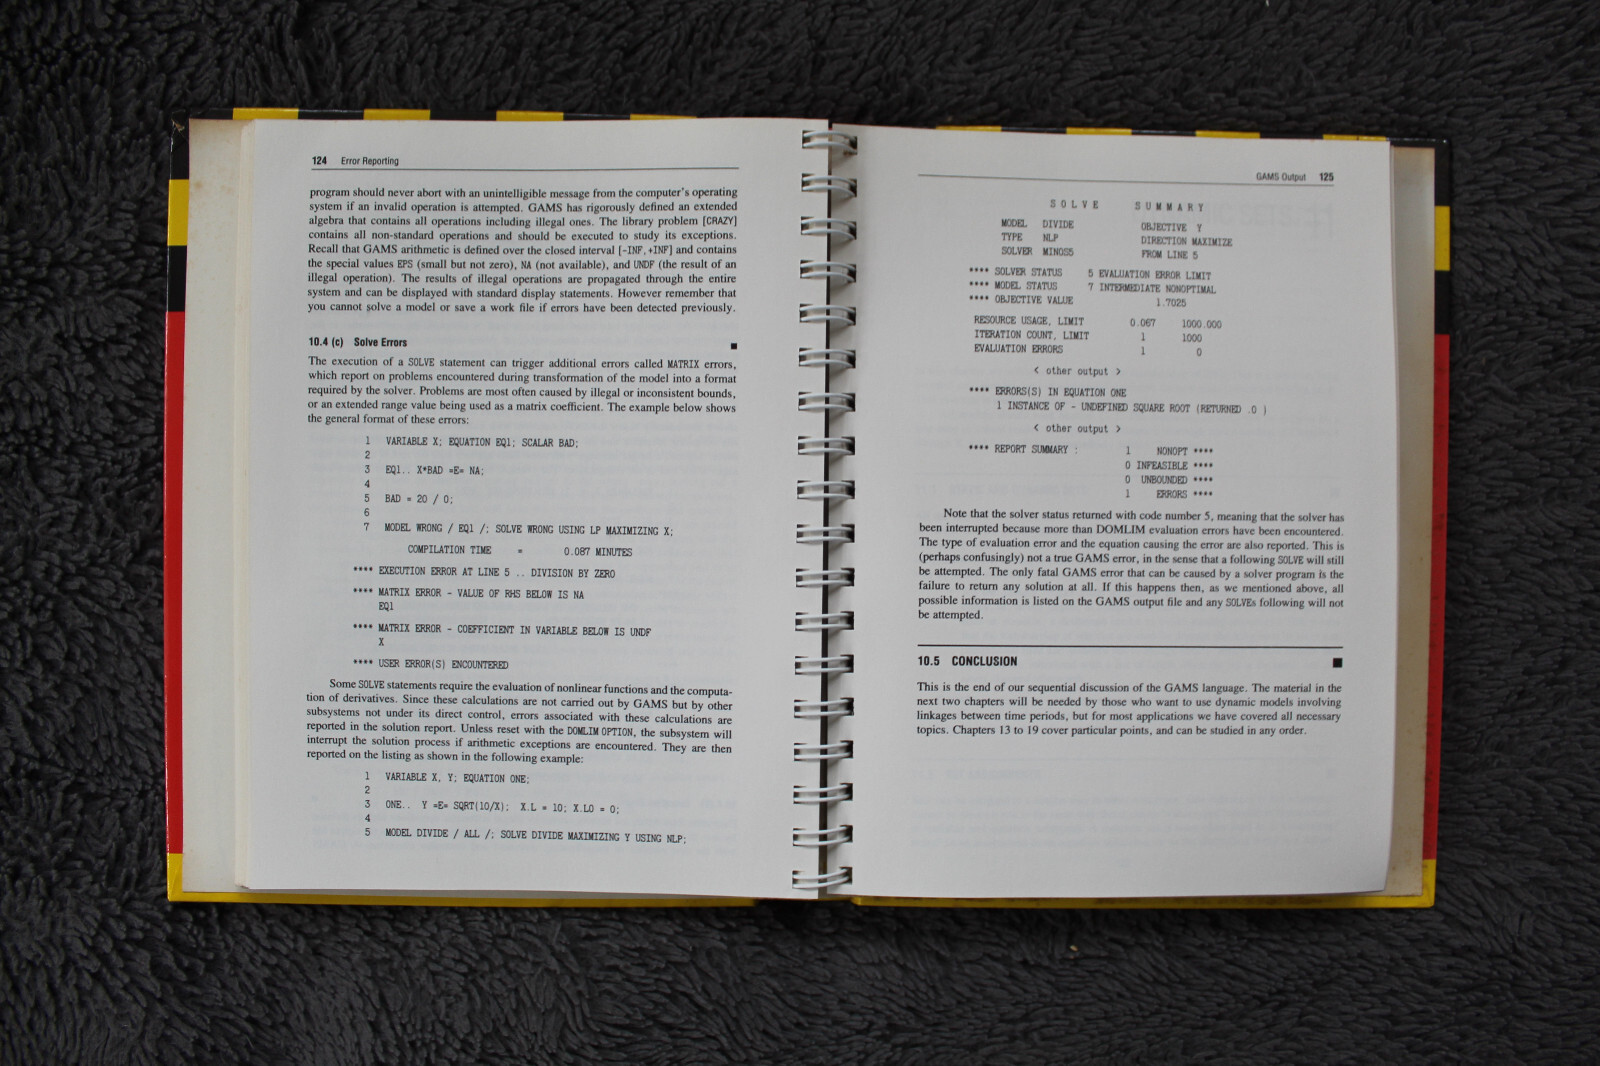 124 Error Reporting
program should never abort with an unintelligible message from the computer's operating
system if an invalid operation is attempted. GAMS has rigorously defined an extended
algebra that contains all operations including illegal ones. The library problem [CRAZY]
contains all non-standard operations and should be executed to study its exceptions.
Recall that GAMS arithmetic is defined over the closed interval [-INF,+INF] and contains
the special values EPS (small but not zero), NA (not available), and UNDF (the result of an
illegal operation). The results of illegal operations are propagated through the entire
system and can be displayed with standard display statements. However remember that
you cannot solve a model or save a work file if errors have been detected previously.
10.4 (c) Solve Errors
The execution of a SOLVE statement can trigger additional errors called MATRIX errors,
which report on problems encountered during transformation of the model into a format
required by the solver. Problems are most often caused by illegal or inconsistent bounds,
or an extended range value being used as a matrix coefficient. The example below shows
the general format of these errors:
1 VARIABLE X; EQUATION EQ1; SCALAR BAD;
2
3 EQ1.. X*BAD =E= NA;
4
5 BAD = 20 / 0;
6
7 MODEL WRONG / EQ1 /; SOLVE WRONG USING LP MAXIMIZING X;
COMPILATION TIME = 0.087 MINUTES
**** EXECUTION ERROR AT LINE 5 .. DIVISION BY ZERO
**** MATRIX ERROR - VALUE OF RHS BELOW IS NA
EQ1
**** MATRIX ERROR - COEFFICIENT IN VARIABLE BELOW IS UNDF
X
**** USER ERROR(S) ENCOUNTERED
Some SOLVE statements require the evaluation of nonlinear functions and the computa-
tion of derivatives. Since these calculations are not carried out by GAMS but by other
subsystems not under its direct control, errors associated with these calculations are
reported in the solution report. Unless reset with the DOMLIM OPTION, the subsystem will
interrupt the solution process if arithmetic exceptions are encountered. They are then
reported on the listing as shown in the following example:
1 VARIABLE X, Y; EQUATION ONE;
2
3 ONE.. Y =E= SQRT(10/X); X.L = 10; X.LO = 0;
4
5 MODEL DIVIDE / ALL /; SOLVE DIVIDE MAXIMIZING Y USING NLP;
GAMS Output 125
S O L V E S U M M A R Y
MODEL DIVIDE OBJECTIVE Y
TYPE NLP DIRECTION MAXIMIZE
SOLVER MINOS5 FROM LINE 5
**** SOLVER STATUS 5 EVALUATION ERROR LIMIT
**** MODEL STATUS 7 INTERMEDIATE NONOPTIMAL
**** OBJECTIVE VALUE 1.7025
RESOURCE USAGE, LIMIT 0.067 1000.000
ITERATION COUNT, LIMIT 1 1000
EVALUATION ERRORS 1 0
< other output >
**** ERRORS(S) IN EQUATION ONE
1 INSTANCE OF - UNDEFINED SQUARE ROOT (RETURNED .0 )
< other output >
**** REPORT SUMMARY : 1 NONOPT ****
0 INFEASIBLE ****
0 UNBOUNDED ****
1 ERRORS ****
Note that the solver status returned with code number 5, meaning that the solver has
been interrupted because more than DOMLIM evaluation errors have been encountered.
The type of evaluation error and the equation causing the error are also reported. This is
(perhaps confusingly) not a true GAMS error, in the sense that a following SOLVE will still
be attempted. The only fatal GAMS error that can be caused by a solver program is the
failure to return any solution at all. If this happens then, as we mentioned above, all
possible information is listed on the GAMS output file and any SOLVEs following will not
be attempted.
10.5 CONCLUSION
This is the end of our sequential discussion of the GAMS language. The material in the
next two chapters will be needed by those who want to use dynamic models involving
linkages between time periods, but for most applications we have covered all necessary
topics. Chapters 13 to 19 cover particular points, and can be studied in any order.